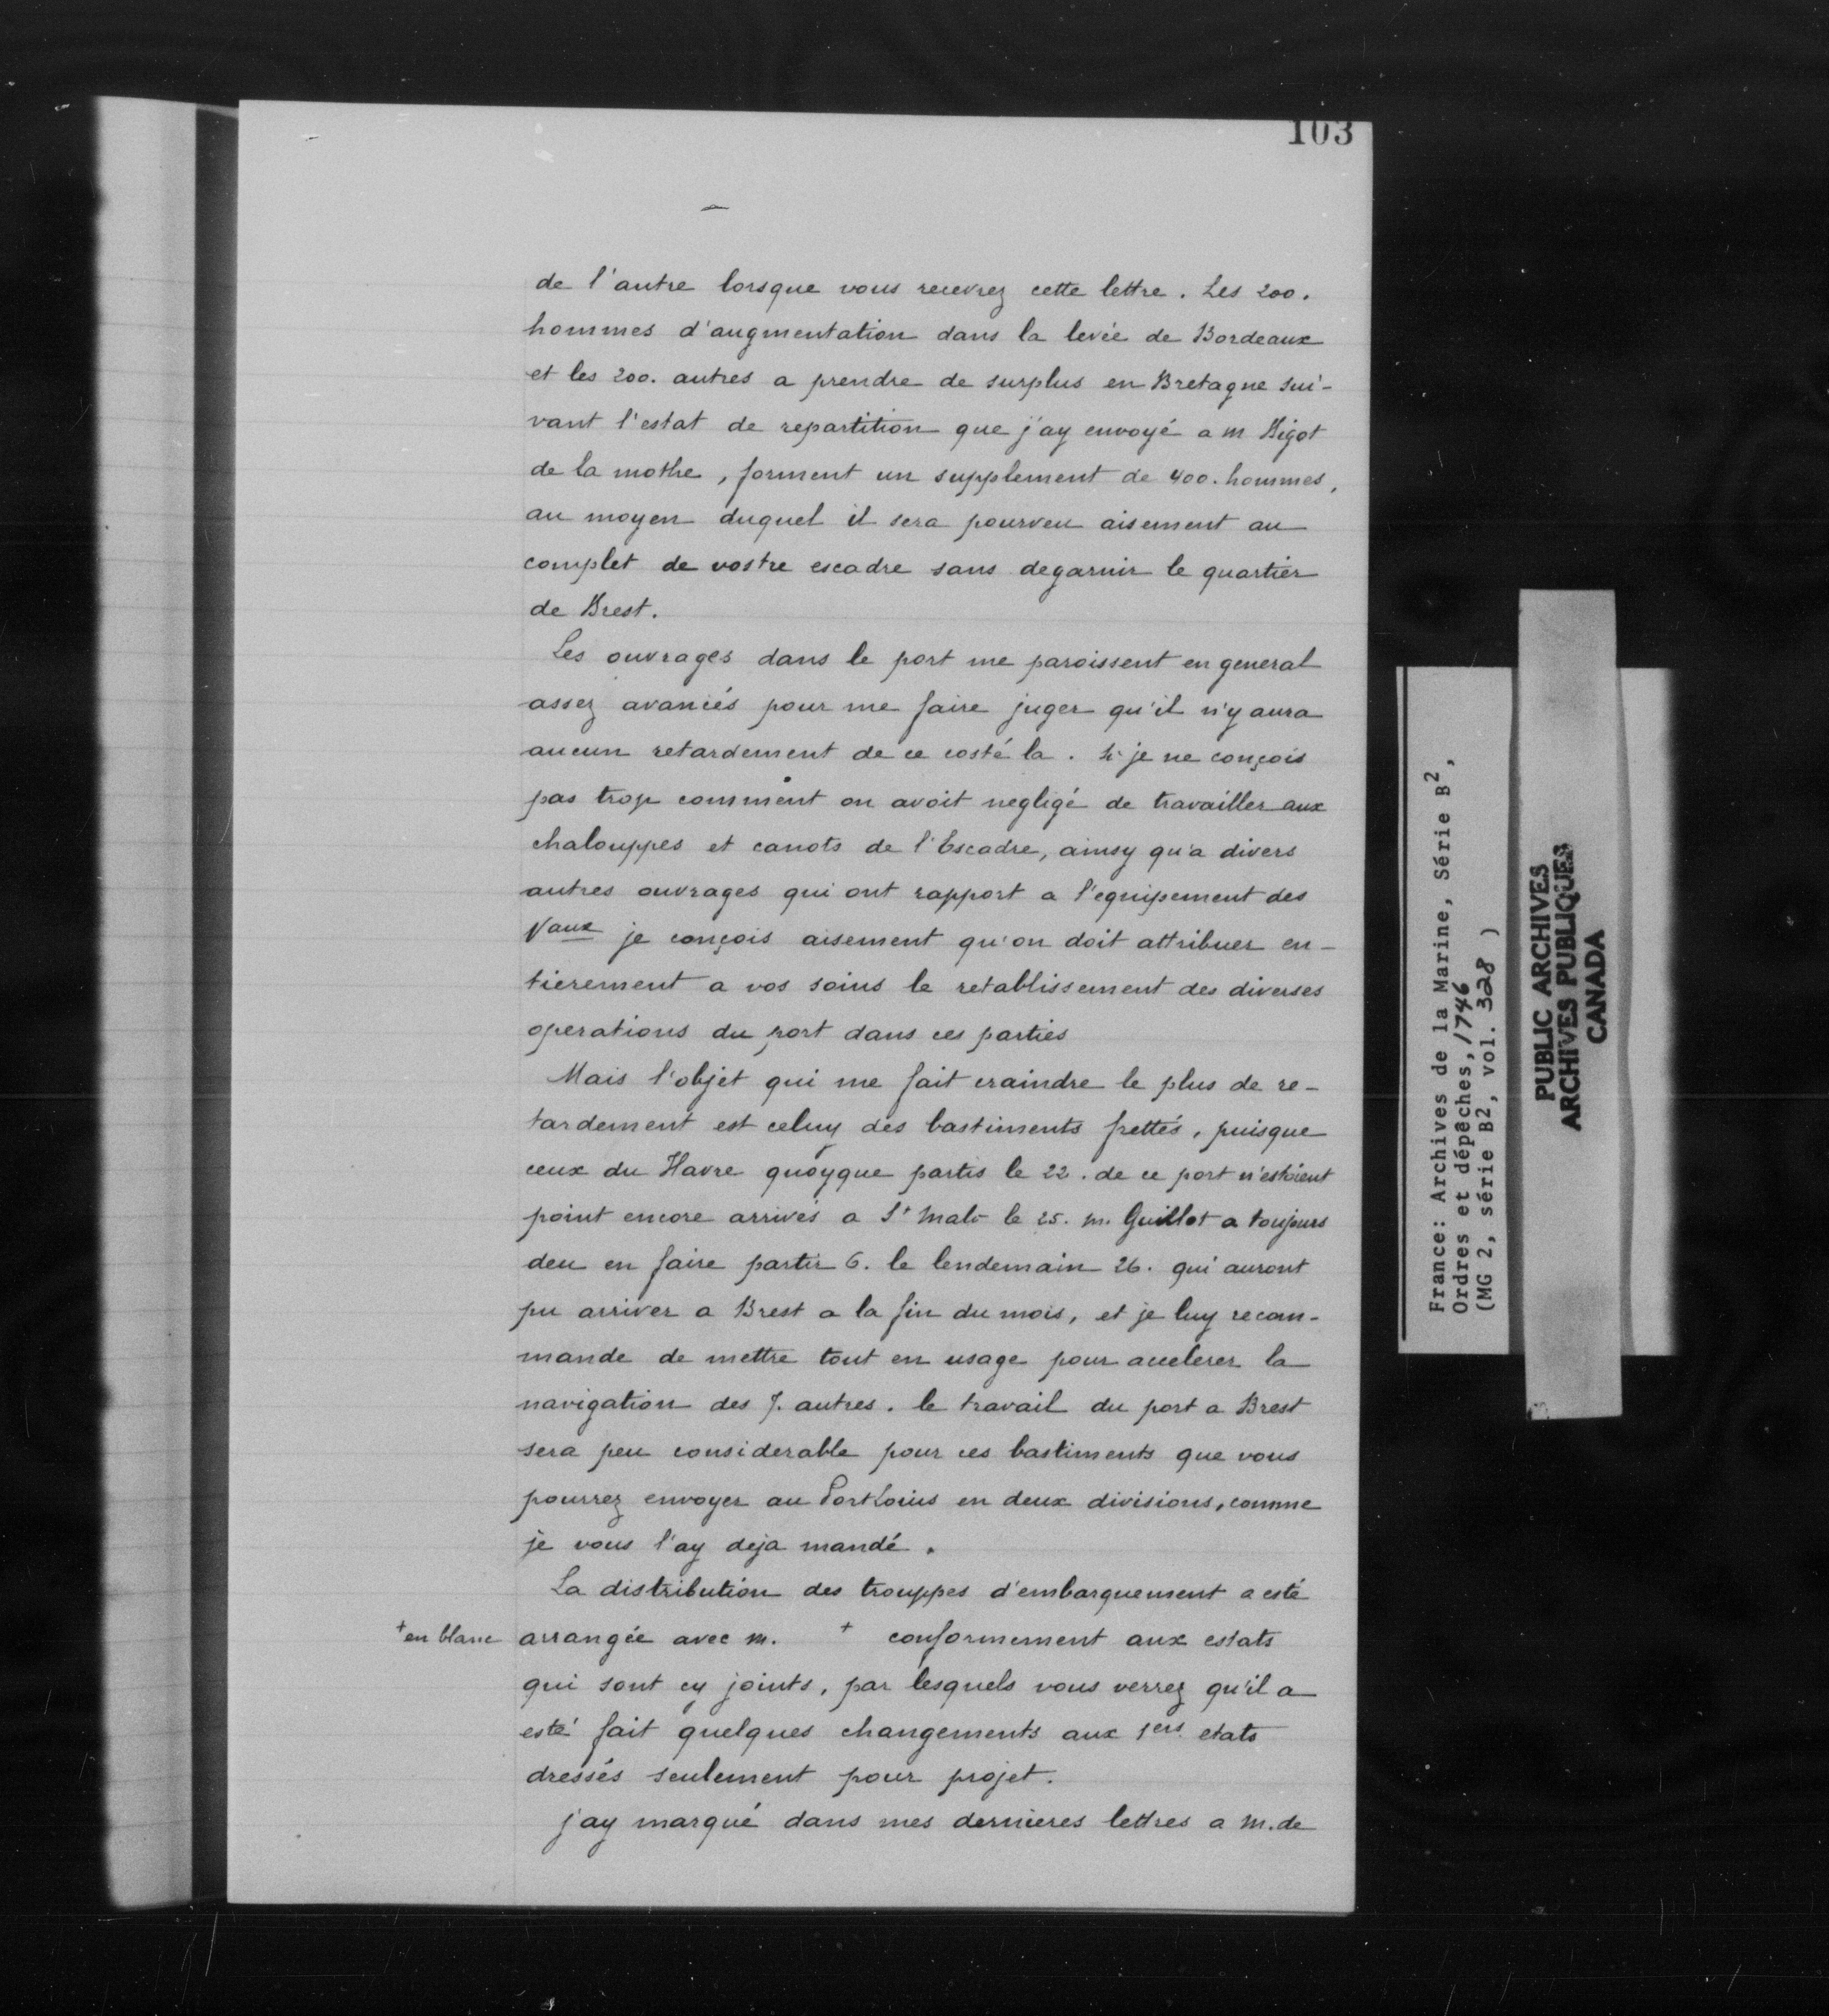 103
de l'autre lorsque vous recevrez cette lettre. Les 200.
hommes d'augmentation dans la levée de Bordeaux
et les 200. autres a prendre de surplus en Bretagne sui-
vant l'estat de repartition que j'ay envoyé a m Bigot
de la mothe, forment un supplement de 400. hommes,
au moyen duquel il sera pourveu aisement au
complet de vostre escadre sans degarnir le quartier
de Brest.
Les ouvrages dans le port me paroissent en general
assez avancés pour me faire juger qu'il n'y aura
aucun retardement de ce costé la. Si je ne conçois
pas trop comment on avoit negligé de travailler aux
chalouppes et canots de l'Escadre, ainsy qu'a divers
autres ouvrages qui ont rapport a l'equipement des
Vaux je conçois aisement qu'on doit attribuer en-
tierement a vos soins le retablissement des diverses
operations du port dans ces parties
Mais l'objet qui me fait craindre le plus de re-
tardement est celuy des bastiments frettés, puisque
ceux du Havre quoyque partis le 22. de ce port n'estoient
point encore arrivés a St Malo le 25. m. Guillot a toujours
deu en faire partir 6. le lendemain 26. qui auront
pu arriver a Brest a la fin du mois, et je luy recom-
mande de mettre tout en usage pour accelerer la
navigation des 7. autres. le travail du port a Brest
sera peu considerable pour ces bastiments que vous
pourrez envoyer au Port Louis en deux divisions, comme
je vous l'ay deja mandé.
La distribution des trouppes d'embarquement a esté
+ en blanc arrangée avec m. + conformement aux estats
qui sont cy joints, par lesquels vous verrez qu'il a
esté fait quelques changements aux 1ers. etats
dressés seulement pour projet.
j'ay marqué dans mes dernieres lettres a M. de
France: Archives de la Marine, Série B2,
Ordres et dépêches, 1746
(MG 2, série B2, vol. 328 )
PUBLIC ARCHIVES
ARCHIVES PUBLIQUES
CANADA